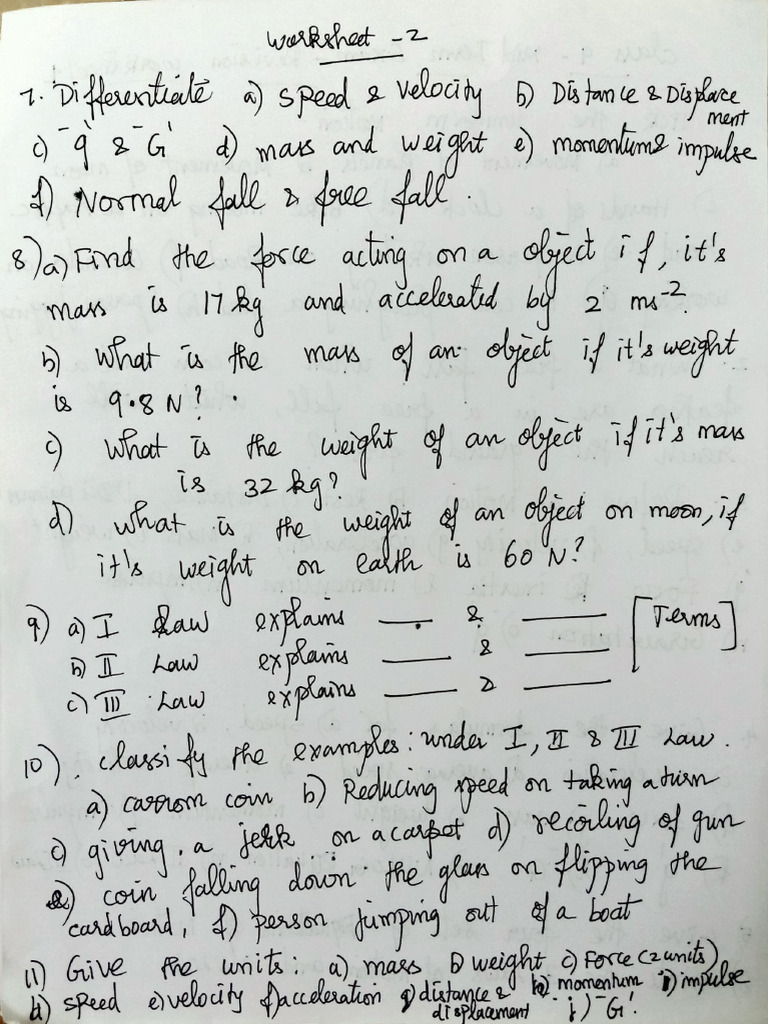 Worksheet - 2
7. Differentiate a) speed & velocity b) Distance & Displace
ment
c) 'g' & 'G' d) mass and weight e) momentum & impulse
f) Normal fall & free fall.
8) a) Find the force acting on a object if, it's
mass is 17 kg and accelerated by 2 ms⁻².
b) What is the mass of an object if it's weight
is 9.8 N?
c) What is the weight of an object if it's mass
is 32 kg?
d) what is the weight of an object on moon, if
it's weight on earth is 60 N?
9) a) I Law explains ___ & ___ [Terms]
b) II Law explains ___ & ___
c) III Law explains ___ & ___
10). classify the examples: under I, II & III Law.
a) carrom coin b) Reducing speed on taking a turn
c) giving a jerk on a carpet d) recoiling of gun
e) coin falling down the glass on flipping the
cardboard, f) person jumping out of a boat
11) Give the units: a) mass b) weight c) Force (2 units)
d) speed e) velocity f) acceleration g) distance & displacement h) momentum i) impulse
j) 'G'.